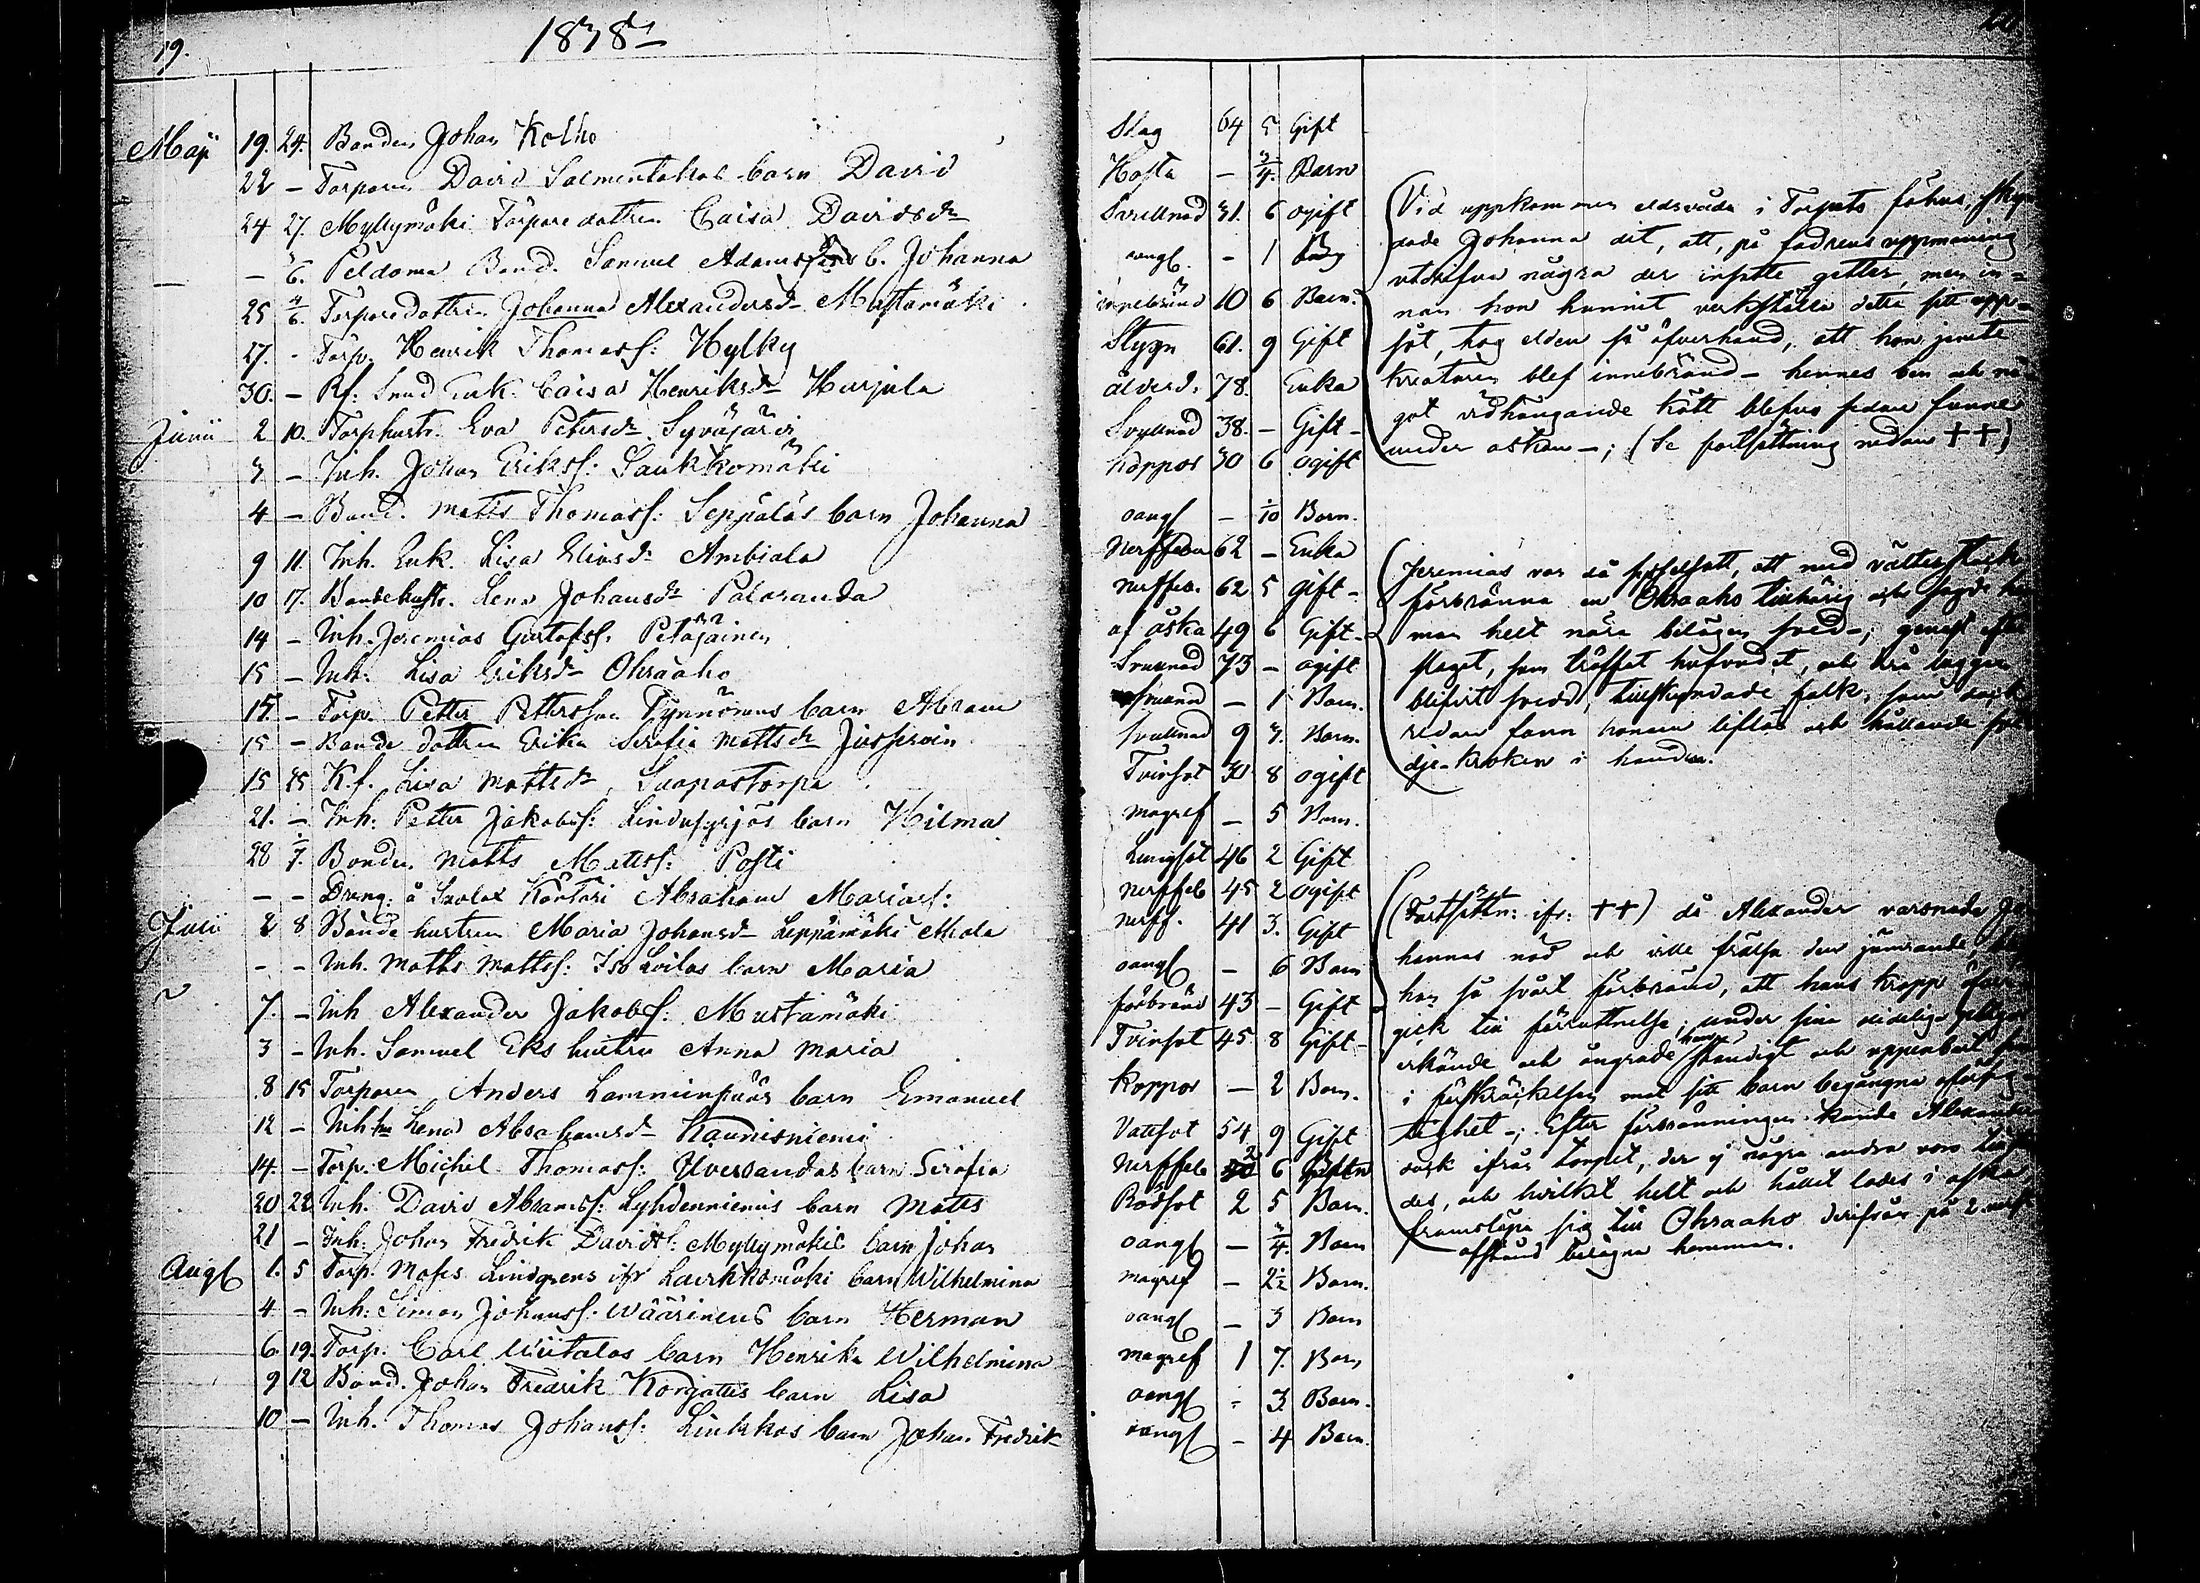 19.
1838
Maji 19. 24. Bonden Johan Kolho Slag 64 5 Gift
22 - Torparen David Salmentakas barn David Hosta - 3/4 Barn
24 27. Myllymäki Torparedottren Caisa Davidsdr Svullnad 31. 6 ogift
- 3/6. Peldoma Bond. Samuel Adamss b. Johanna oangf. - 1
25 4/6. Torparedottren Johanna Alexandersdr Mustamäki innebränd 10 6 Barn.
27. - Torp. Henrik Thomass: Hylky Stygn 61. 9 Gift
30. - Rf: Enk. Caisa Henriksdr Harjula ålderd. 78. Enka
Junii 2 10. Torphustr. Eva Petersdr Syväjärvi Svullnad 38. - Gift
3 - Inh. Johan Erikss: Saukkomäki Koppor 30 6 ogift
4 - Bond. Matts Thomass: Seppäläs barn Johanna oangf - 1/10 Barn.
9 11. Inh. Enk. Lisa Eliasdr Ambiala Nerffeber 62 - Enka
10 17. Bondehustr. Lena Johansdr Paloranda nerffeb. 62 5 gift
14 - Inh. Jeremias Gustafss. Petäjäinen af åska 49 6 Gift
15 - Inh. Lisa Eriksdr Ohraaho Svullnad 73 - ogift
15. - Torp. Petter Pettersson Tynnönens barn Abram - 1 Barn.
15 - Bonde dottren Erika Serafia Mattsdr Jussfroin Svullnad 9 3. Barn.
15 25 K.f. Lisa Mattsdr, Saapastorpa Tvinsot 31 8 ogift
21. - Inh. Petter Jakobss: barn Hilma magref - 5 Barn.
28 1/7. Bonden Matts Mattss: Posti Lungsot 46 2 Gift
- - Dreng. å Savlax Kontori Abraham Mariass: Nerffeb 45 2 ogift
Julii 2 8 Bonde hustrun Maria Johansdr Leppämäki Ahola nerff. 41 3. Gift
- - Inh. Matts Mattss: Iso barn Maria oangf - 6 Barn
7. - Inh Alexander Jakobss: Mustamäki förbränd 43 - Gift
3 - Inh. Samuel Eks hustru Anna Maria Tvinsot 45 8 Gift
8 15 Torparen Anders Lamminpääs barn Emanuel Koppor - 2 Barn.
12 - Inh Lena Abrahamsdr Kaunisniemi Vattsot 54 9 Gift
14. - Torp. Michel Thomass: barn Serafia Nerffeb 6
20 22 Inh. David Abramss: Lyhdenniemis barn Matts Rödsot 2 5 Barn.
21 - Inh. Johan Fredrik Davidss: Myllymäkis barn Johan oangf - 3/4. Barn
Augf 1. 5 Torp. Moses Lindgrens ifr Laukkomäki barn Wilhelmina magref - 2 1/2 Barn.
4 - Inh: Simon Johanss. Wäärinens barn Herman oangf - 3 Barn
6 19. Torp. Carl Wiitalas barn Henrika Wilhelmina magref 1 7. Barn
9 12 Bond. Johan Fredrik Korjattis barn Lisa oangf - 3 Barn.
10 - Inh. Thomas Johanss: Liukkos barn Johan Fredrik oangf - 4 Barn.
Vid uppkommen eldsvåda i Torpets fähus, sky
dade Johanna dit, att, på fadrens uppmaning
utdrifva några der instte getter, men in=
nan hon hunnit verkställa detta sitt upp=
såt, tog elden så öfverhand, att hon jemte
kreaturen blef innebränd - hennes ben och nå
got vidhängande kött blefvo sedan funne
under askan -; (Se fortsättning nedan ++)
Jeremias var då sysselsatt, att med
förbränna en Ohraaho tillhörig och
man helt nära belägen sved -; genast efter
slaget, som träffat hufvudet, och
blifvit svedd, tillskyndade folk, som dock
redan fann honom liflös och hållande
kroken i handen.
(Fortsättn: ifr: ++) då Alexander varsnade Jo
hannas nöd och ville frälsa den jämrande,
han så svårt förbränd, att hans kropp öfver
gick till förruttnelse; under sina
erkände och ångrade han ständigt och uppenbart
i förskräckelsen mot sitt barn begångna oförsig
tighet -; Efter förbränningen kunde Alexander
dock ifrån torpet, der ej några andra voro
des, och hvilket helt och hållet lades i aska
framsläpa sig till Ohraaho derifrån på 2
afstånd belägna hemman.